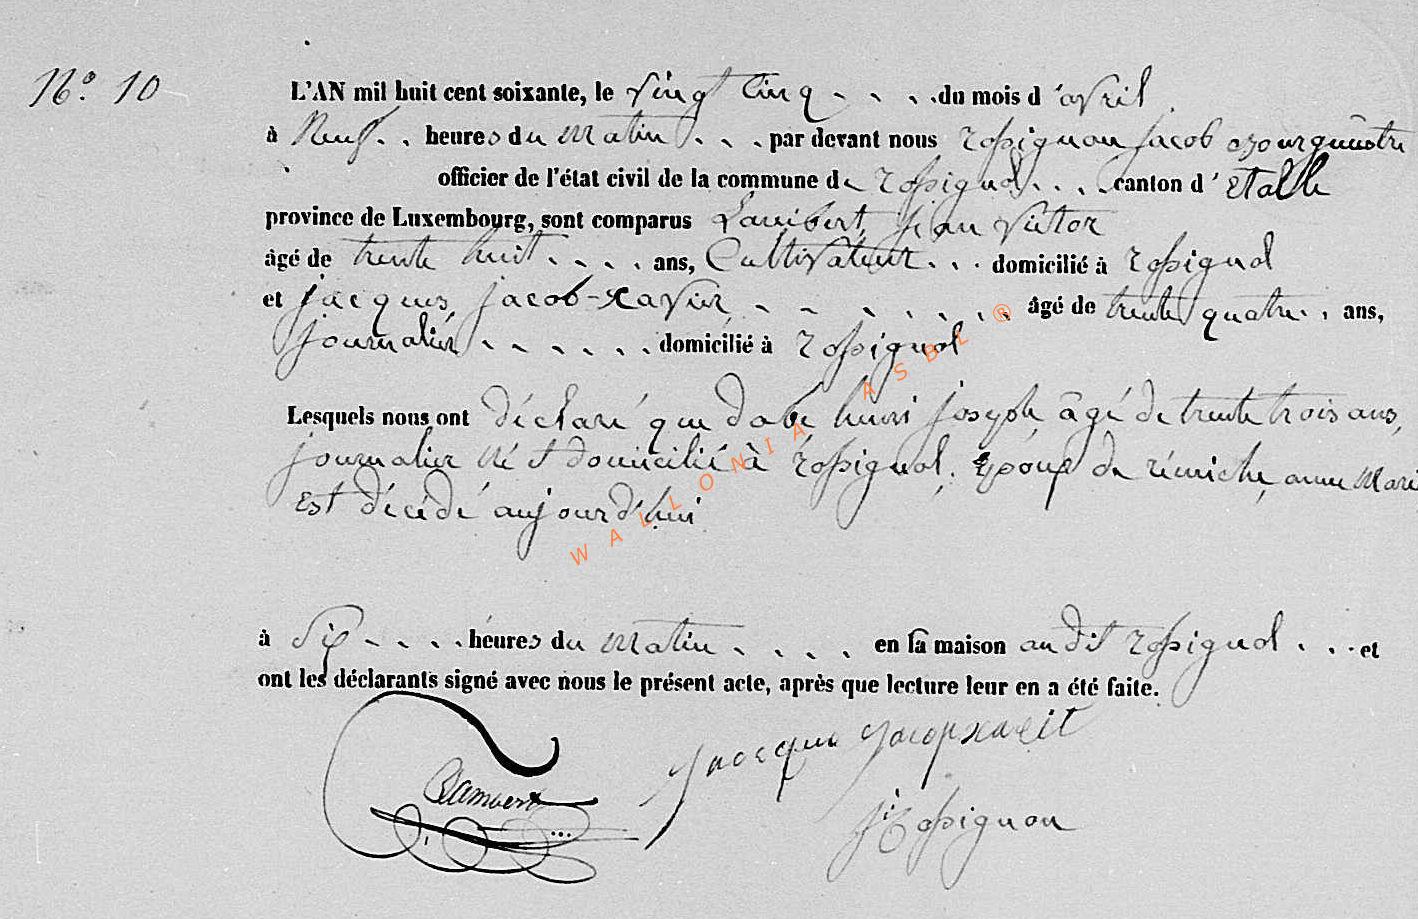 N.° 10
L'AN mil huit cent soixante, le vingt cinq du mois d'avril
à neuf heures du matin par devant nous rossignon jacob bourgumestre
officier de l'état civil de la commune de rossignol canton d'étalle
province de Luxembourg, sont comparus Lambert, jean victor
âgé de trente huit ans, Cultivateur domicilié à rossignol
et jacques, jacob-xavier âgé de trente quatre ans,
journalier domicilié à rossignol
Lesquels nous ont déclaré que henri joseph, âgé de trente trois ans,
journalier né et domicilié à rossignol, époux de rémiche, anne Marie
est décédé aujourd'hui
à six heures du matin en sa maison audit rossignol et
ont les déclarants signé avec nous le présent acte, après que lecture leur en a été faite.
Lambert
jacque
j rossignon
WALLONIA ASBL ®